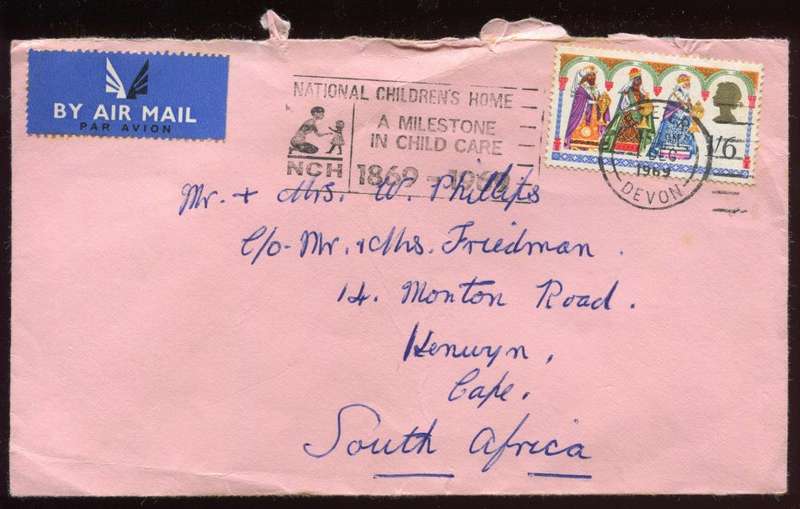 BY AIR MAIL
PAR AVION
NATIONAL CHILDREN'S HOME
A MILESTONE
IN CHILD CARE
NCH
1869-1969
1/6
DEC
1969
DEVON
Mr. + Mrs. W. Phillips
C/o- Mr. & Mrs. Friedman.
14. Monton Road.
Kenwyn,
Cape.
South Africa